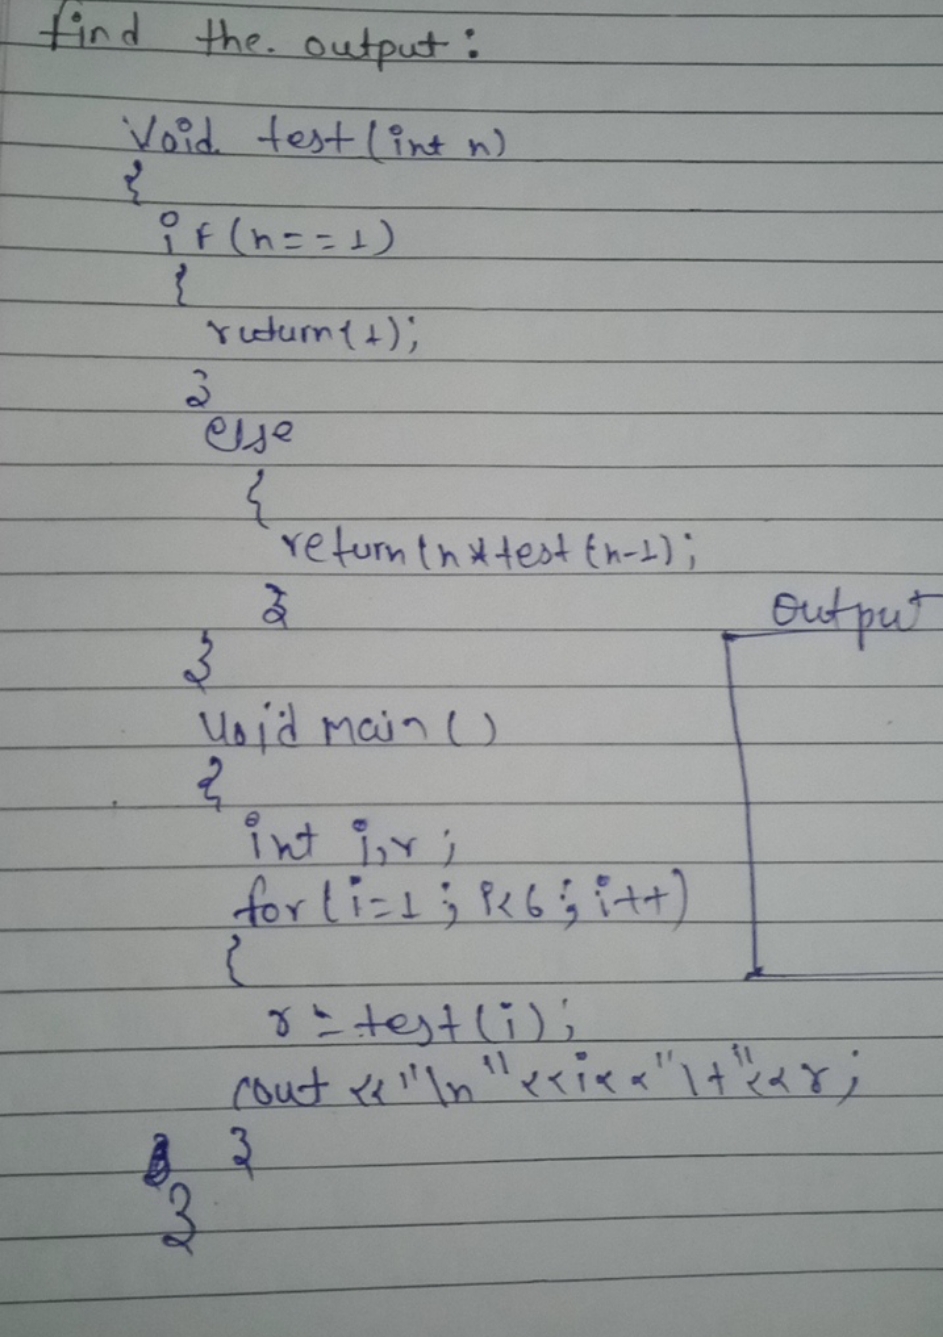 find the. output :
Void test (int n)
{
if (n==1)
{
return(1);
}
else
{
return(n*test(n-1);
}
Output
}
void main ()
{
int i,r;
for(i=1; i<6; i++)
{
r = test(i);
cout <<"\n"<<i<<"\t"<<r;
}
}